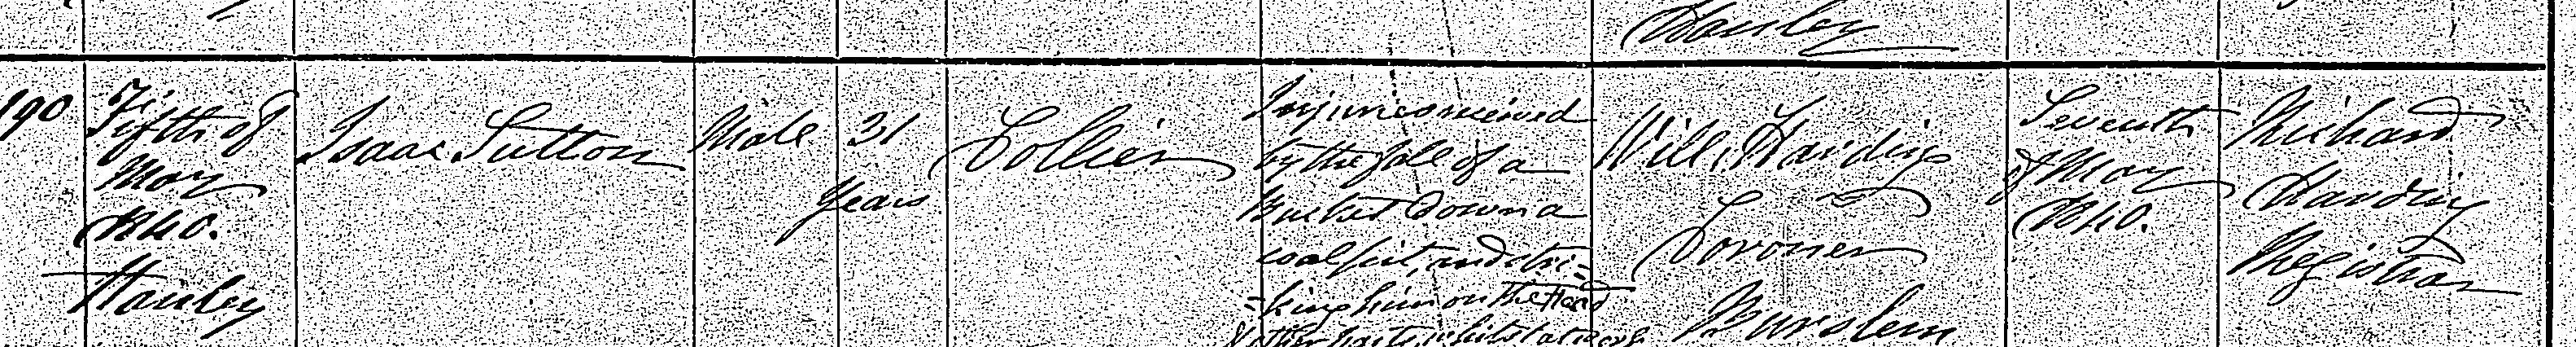 Hanley
190
Fifth of
May
1840.
Hanley
Isaac Sutton
Male
31
Years
Collier
Injuries received
by the fall of a
Bucket down a
coal pit, and stri=
=king him on the Head
& other parts, whilst at work
Will. Harding
Coroner
Burslem
Seventh
of May
1840.
Richard
Harding
Registrar